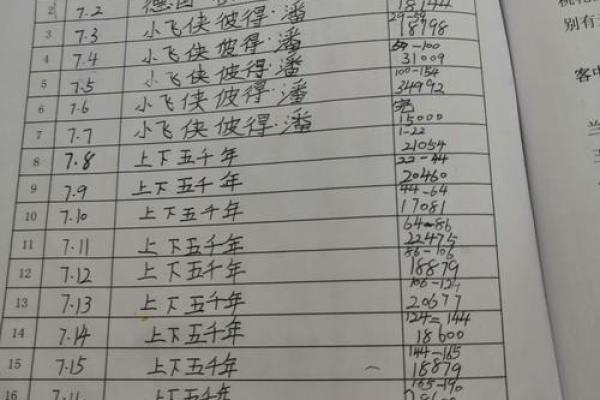 2 7.2 德国 18144
3 7.3 小飞侠彼得·潘 29-59 18198
4 7.4 小飞侠彼得·潘 59-100 31009
5 7.5 小飞侠彼得·潘 100-154 34992
6 7.6 小飞侠彼得·潘 完 15000
7 7.7 小飞侠彼得·潘 1-22 21054
8 7.8 上下五千年 22-44 20460
9 7.9 上下五千年 44-64 17081
10 7.10 上下五千年 64-86 22475
11 7.11 上下五千年 86-106 18879
12 7.12 上下五千年 106-124 20677
13 7.13 上下五千年 124-144 18600
14 7.14 上下五千年 144-165 18879
15 7.15 上下五千年 165-190
16 上下五千年
别有
客中
当